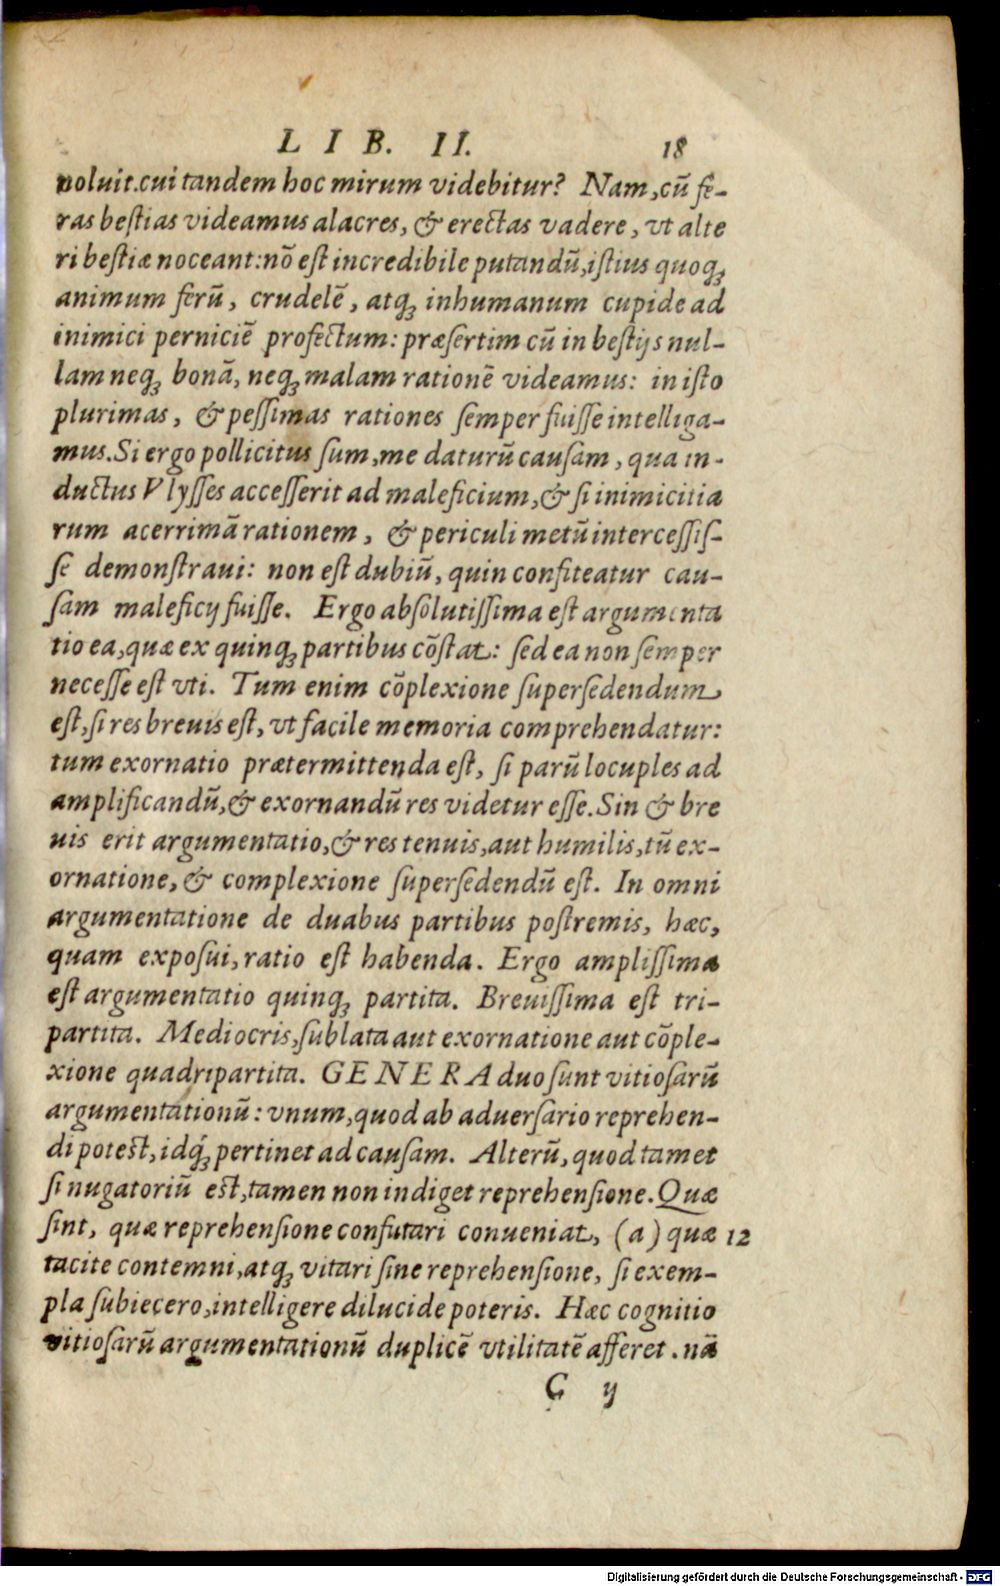 LIB. II. 18
noluit.cui tandem hoc mirum videbitur? Nam,cū fe-
ras bestias videamus alacres, & erectas vadere, vt alte
ri bestiæ noceant:nō est incredibile putandū,istius quoq;
animum ferū, crudelē, atq; inhumanum cupide ad
inimici perniciē profectum: præsertim cū in bestijs nul-
lam neq; bonā, neq; malam rationē videamus: in isto
plurimas, & pessimas rationes semper fuisse intelliga-
mus.Si ergo pollicitus sum,me daturū causam, qua in-
ductus Vlysses accesserit ad maleficium,& si inimicitia
rum acerrimā rationem, & periculi metū intercessis-
se demonstraui: non est dubiū, quin confiteatur cau-
sam maleficij fuisse. Ergo absolutissima est argumenta
tio ea,quæ ex quinq; partibus cōstat: sed ea non semper
necesse est vti. Tum enim cōplexione supersedendum
est,si res breuis est, vt facile memoria comprehendatur:
tum exornatio prætermittenda est, si parū locuples ad
amplificandū,& exornandū res videtur esse.Sin & bre
uis erit argumentatio,& res tenuis,aut humilis,tū ex-
ornatione,& complexione supersedendū est. In omni
argumentatione de duabus partibus postremis, hæc,
quam exposui, ratio est habenda. Ergo amplissima
est argumentatio quinq; partita. Breuissima est tri-
partita. Mediocris,sublata aut exornatione aut cōple-
xione quadripartita. GENERA duo sunt vitiosarū
argumentationū: vnum,quod ab aduersario reprehen-
di potest,idq́; pertinet ad causam. Alterū,quod tamet
si nugatoriū est,tamen non indiget reprehensione.Quæ
sint, quæ reprehensione confutari conueniat, (a) quæ 12
tacite contemni,atq; vitari sine reprehensione, si exem-
pla subiecero,intelligere dilucide poteris. Hæc cognitio
vitiosarū argumentationū duplicē vtilitatē afferet. nā
C ij
Digitalisierung gefördert durch die Deutsche Forschungsgemeinschaft - DFG